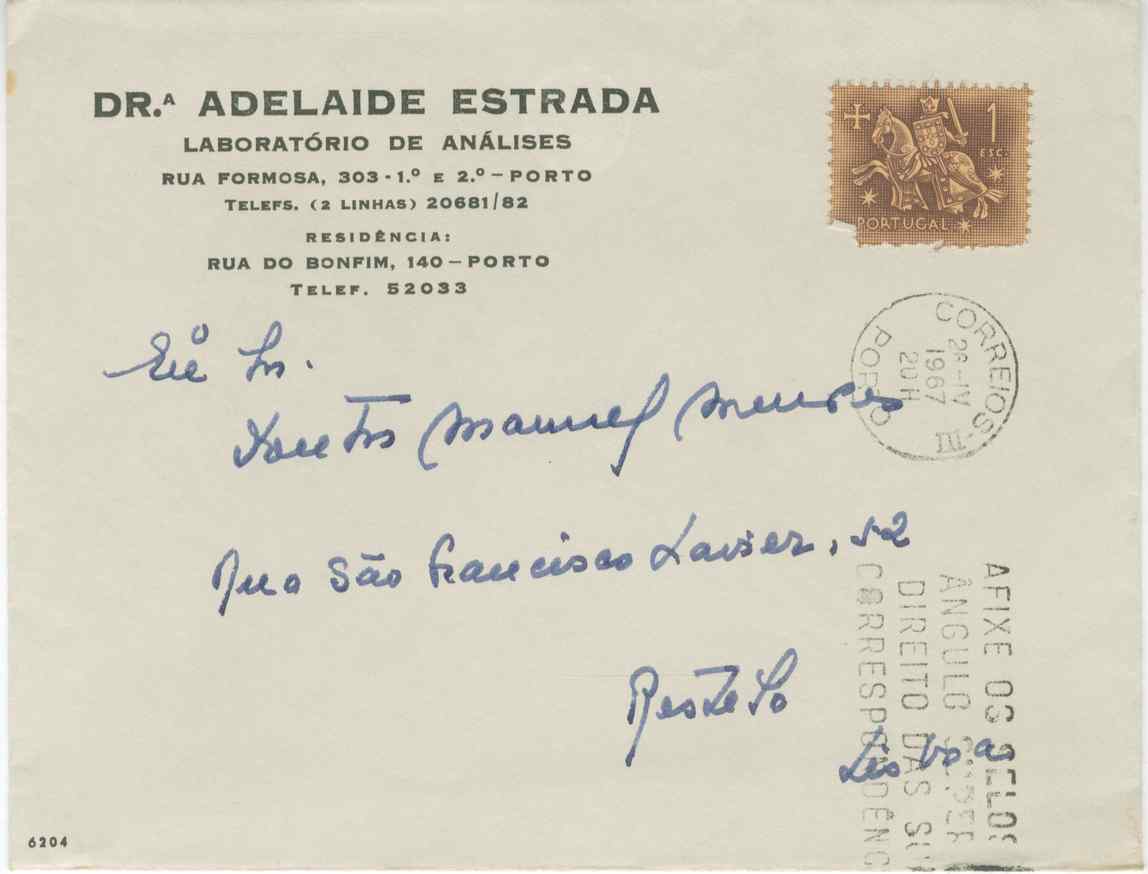 DR.ª ADELAIDE ESTRADA
LABORATÓRIO DE ANÁLISES
RUA FORMOSA, 303 - 1.º E 2.º — PORTO
TELEFS. (2 LINHAS) 20681/82
RESIDÊNCIA:
RUA DO BONFIM, 140 — PORTO
TELEF. 52033
1
ESC.
PORTUGAL
CORREIOS - III
PORTO
28-IV
1967
20H
Sr.
Manuel Mendes
Rua São Francisco Xavier, 52
Restelo
Lisboa
AFIXE OS SELOS
ÂNGULO
DIREITO DAS
CORRESPONDÊNC
6204